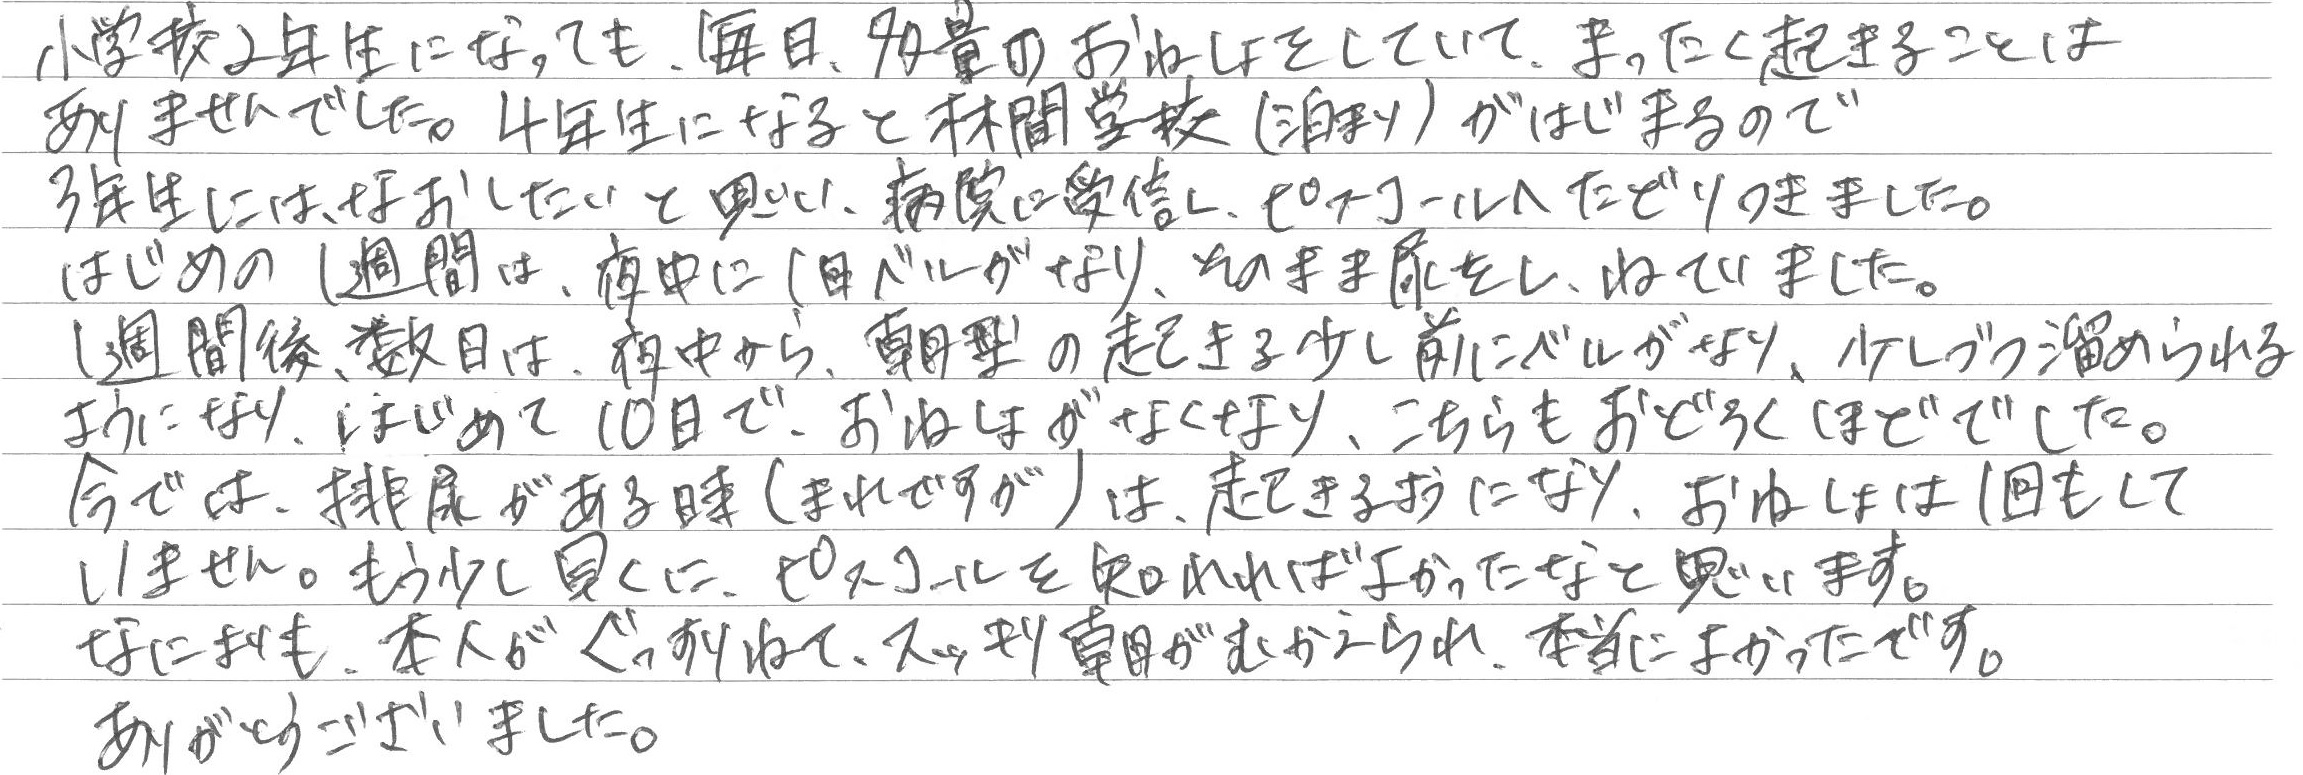 小学校2年生になっても、毎日、多量のおねしょをしていて、まったく起きることは
ありませんでした。4年生になると林間学校(泊まり)がはじまるので
3年生には、なおしたいと思い、病院に受信し、ピスコールへたどりつきました。
はじめの1週間は、夜中に1回ベルがなり、そのまま尿をし、ねていました。
1週間後、数日は、夜中から、朝型の起きる少し前にベルがなり、少しづつ溜められる
ようになり、はじめて10日で、おねしょがなくなり、こちらもおどろくほどでした。
今では、排尿がある時(まれですが)は、起きるようになり、おねしょは1回もして
いません。もう少し早くに、ピスコールを知れればよかったなと思います。
なによりも、本人がぐっすりねて、スッキリ朝がむかえられ、本当によかったです。
ありがとうございました。